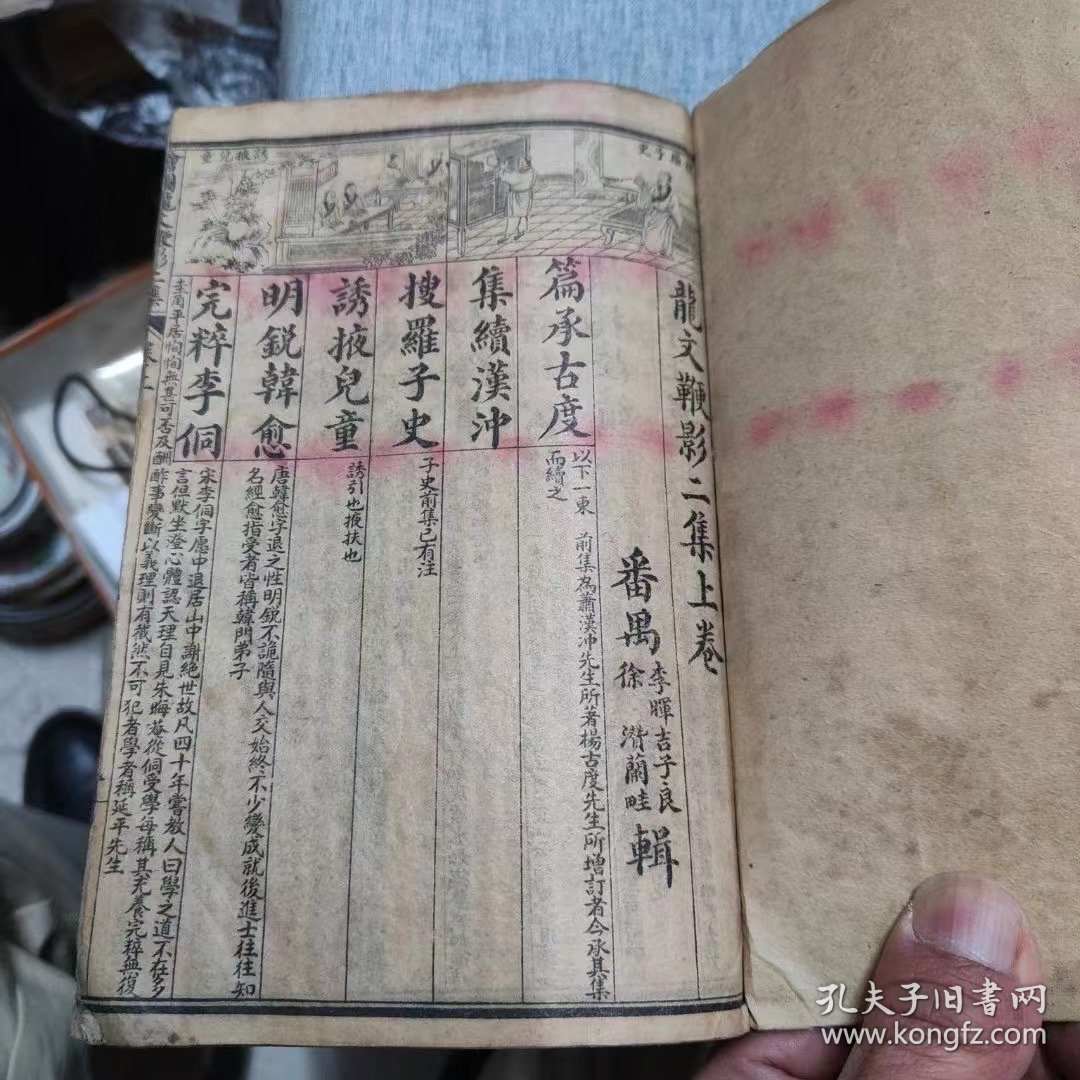 龍文鞭影二集上卷
番禺
李暉吉子良
徐　灒蘭畦
輯
篇承古度
以下一東　前集為蕭漢冲先生所著楊古度先生所增訂者今承其集
而續之
集續漢沖
搜羅子史
子史前集已有注
誘掖兒童
誘引也掖扶也
明銳韓愈
唐韓愈字退之性明銳不詭隨與人交始終不少變成就後進士往往知
名經愈指受者皆稱韓門弟子
完粹李侗
宋李侗字愿中退居山中謝絕世故凡四十年嘗教人曰學之道不在多
言但默坐澄心體認天理自見朱晦菴從侗受學每稱其充養完粹無復
圭角平居恂恂無甚可否及酬酢事變斷以義理則有截然不可犯者學者稱延平先生
誘掖兒童
子史
孔夫子旧書网
www.kongfz.com